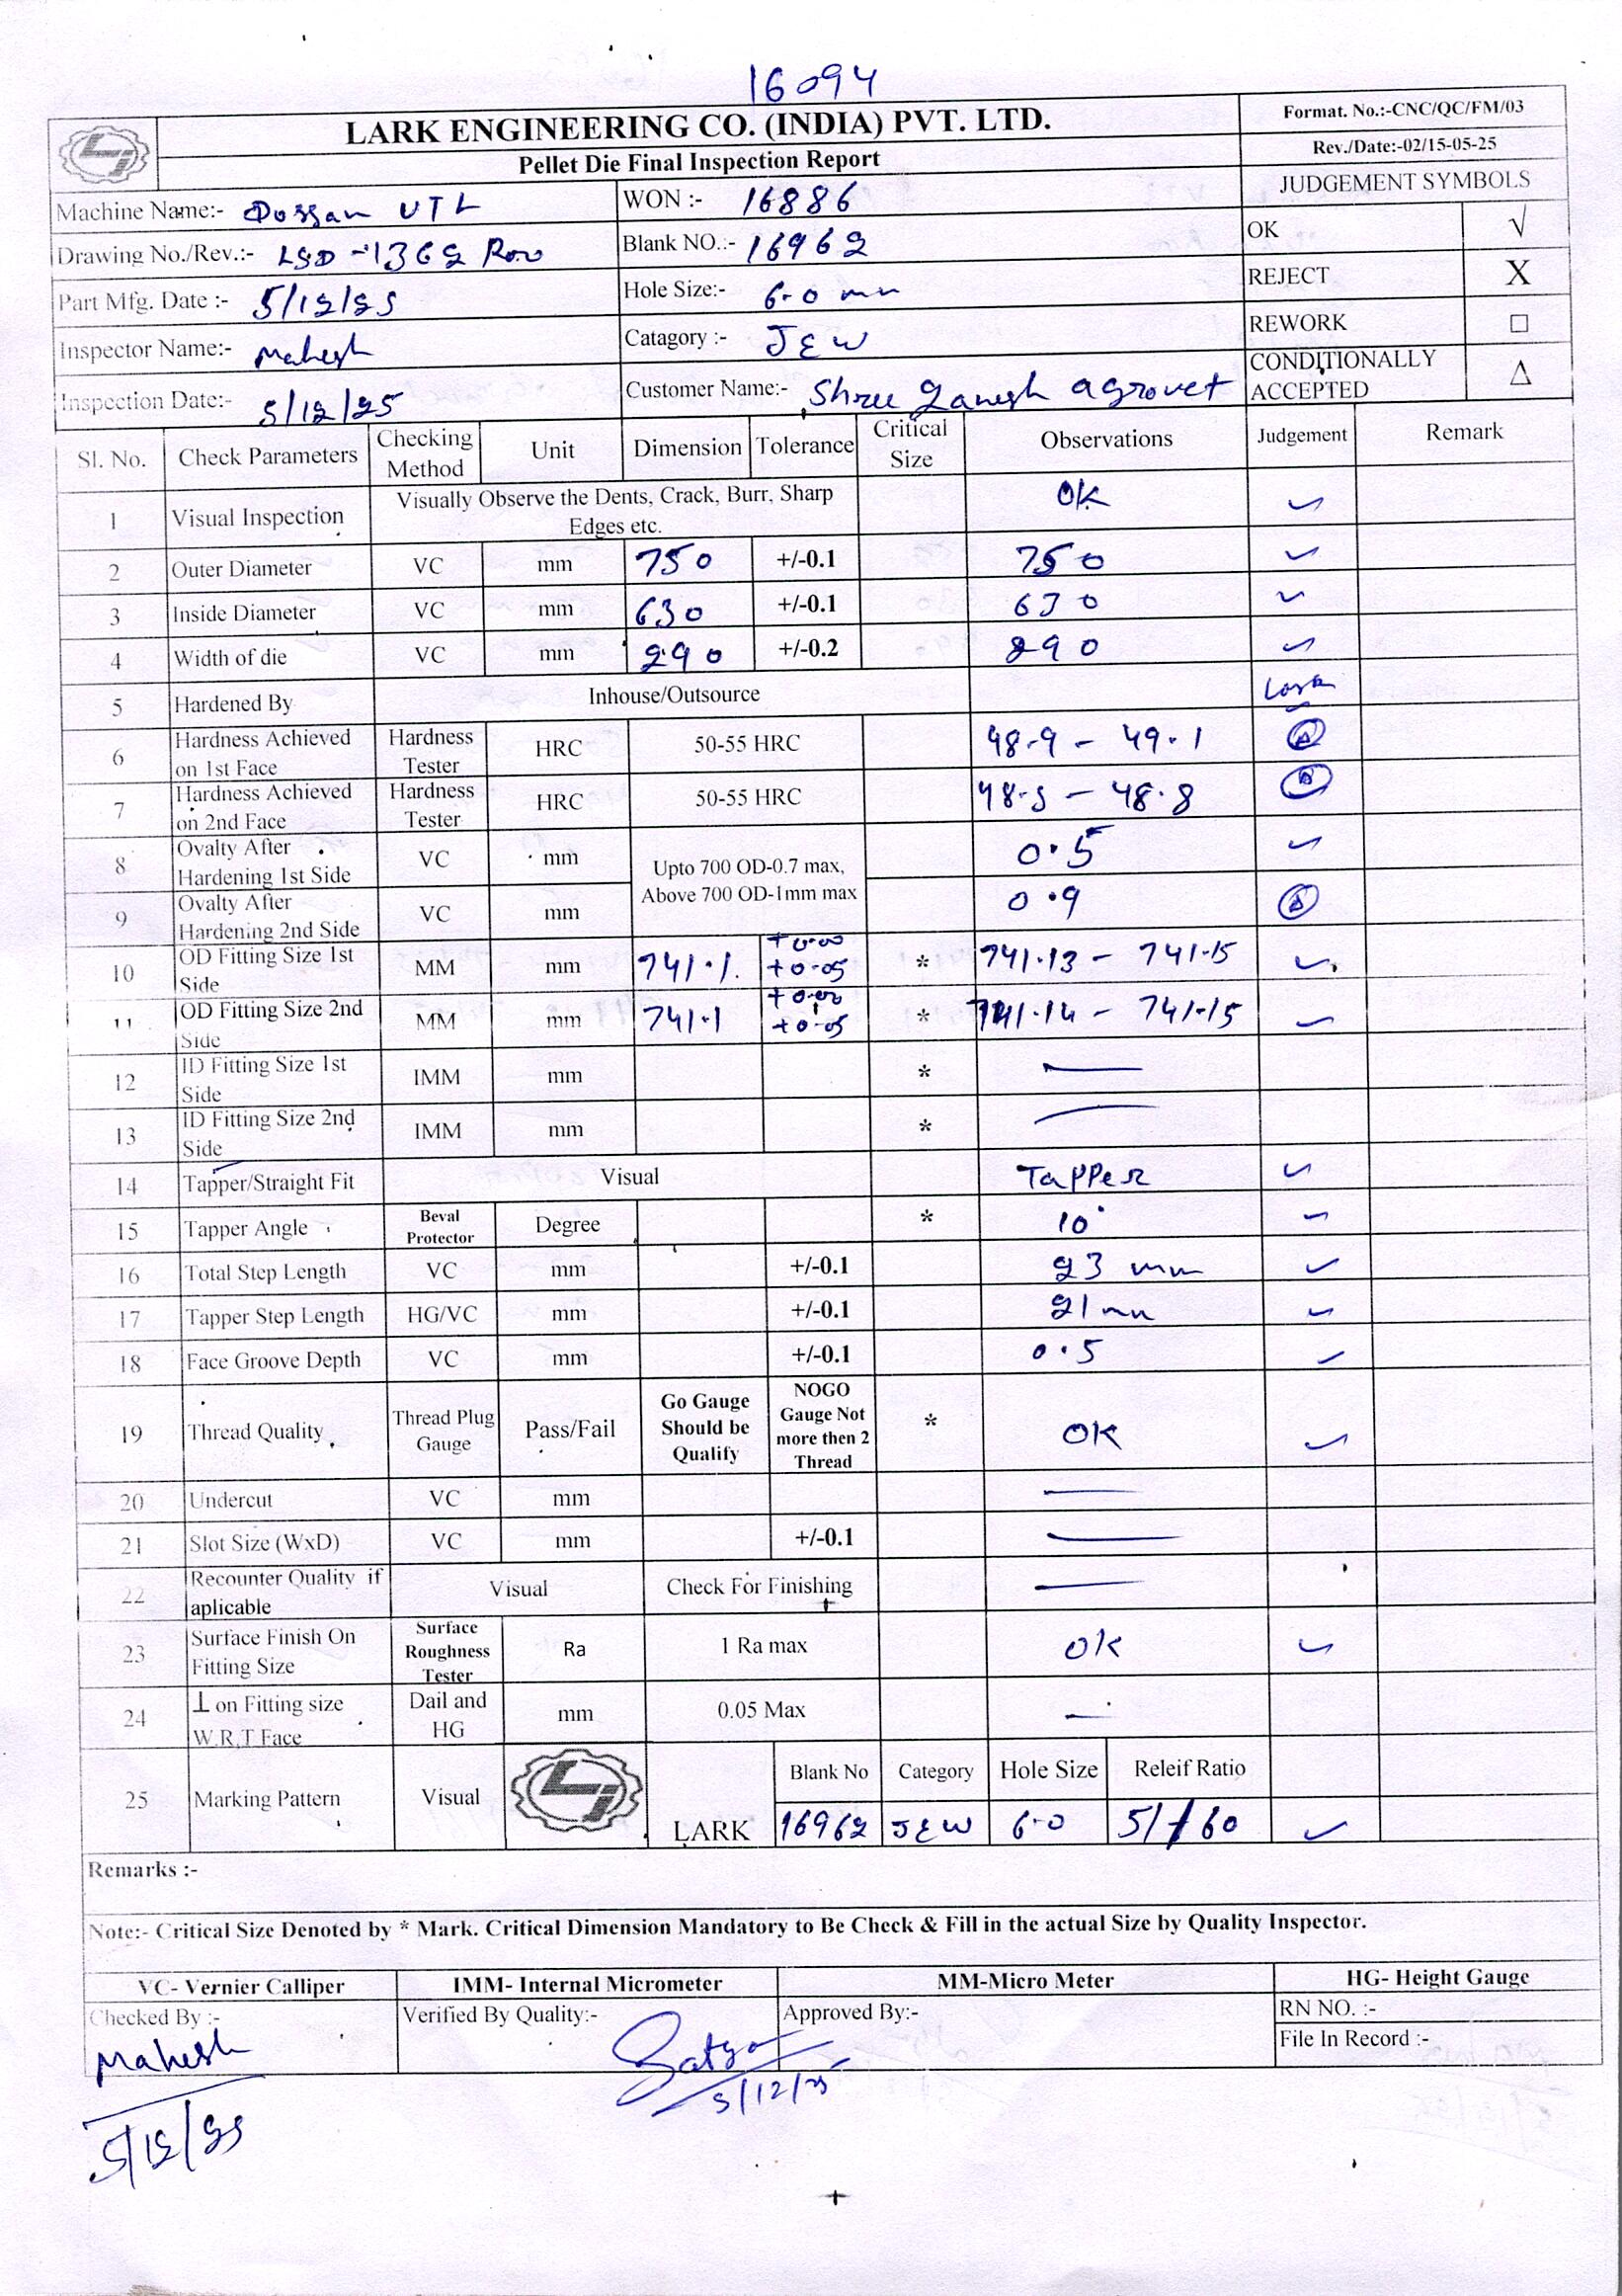 16094
LARK ENGINEERING CO. (INDIA) PVT. LTD.
Pellet Die Final Inspection Report
Format. No.:-CNC/QC/FM/03
Rev./Date:-02/15-05-25
JUDGEMENT SYMBOLS
Machine Name:- Dossan VTL WON :- 16886
OK √
Drawing No./Rev.:- LSD-1362 Blank NO.:- 16962
REJECT X
Part Mfg. Date :- 5/12/25 Hole Size:- 6.0 mm
REWORK □
Inspector Name:- Mahesh Catagory :- JEW
CONDITIONALLY ACCEPTED △
Inspection Date:- 5/12/25 Customer Name:- Shree Ganesh agrovet
Sl. No. Check Parameters Checking Method Unit Dimension Tolerance Critical Size Observations Judgement Remark
1 Visual Inspection Visually Observe the Dents, Crack, Burr, Sharp Edges etc. OK ✓
2 Outer Diameter VC mm 750 +/-0.1 750 ✓
3 Inside Diameter VC mm 630 +/-0.1 630 ✓
4 Width of die VC mm 290 +/-0.2 290 ✓
5 Hardened By Inhouse/Outsource Lark
6 Hardness Achieved on 1st Face Hardness Tester HRC 50-55 HRC 48.9 - 49.1
7 Hardness Achieved on 2nd Face Hardness Tester HRC 50-55 HRC 48.5 - 48.8
8 Ovalty After Hardening 1st Side VC mm Upto 700 OD-0.7 max, Above 700 OD-1mm max 0.5 ✓
9 Ovalty After Hardening 2nd Side VC mm 0.9
10 OD Fitting Size 1st Side MM mm 741.1 +0.00 +0.05 * 741.13 - 741.15 ✓
11 OD Fitting Size 2nd Side MM mm 741.1 +0.00 +0.05 * 741.14 - 741.15 ✓
12 ID Fitting Size 1st Side IMM mm * —
13 ID Fitting Size 2nd Side IMM mm * —
14 Tapper/Straight Fit Visual Tapper ✓
15 Tapper Angle Beval Protector Degree * 10° ✓
16 Total Step Length VC mm +/-0.1 23 mm ✓
17 Tapper Step Length HG/VC mm +/-0.1 21 mm ✓
18 Face Groove Depth VC mm +/-0.1 0.5 ✓
19 Thread Quality Thread Plug Gauge Pass/Fail Go Gauge Should be Qualify NOGO Gauge Not more then 2 Thread * OK ✓
20 Undercut VC mm —
21 Slot Size (WxD) VC mm +/-0.1 —
22 Recounter Quality if aplicable Visual Check For Finishing —
23 Surface Finish On Fitting Size Surface Roughness Tester Ra 1 Ra max OK ✓
24 ⊥ on Fitting size W.R.T Face Dail and HG mm 0.05 Max —
25 Marking Pattern Visual LARK Blank No Category Hole Size Releif Ratio
16962 JEW 6.0 5/ 60 ✓
Remarks :-
Note:- Critical Size Denoted by * Mark. Critical Dimension Mandatory to Be Check & Fill in the actual Size by Quality Inspector.
VC- Vernier Calliper IMM- Internal Micrometer MM-Micro Meter HG- Height Gauge
Checked By :- Mahesh Verified By Quality:- Satya Approved By:- RN NO. :-
File In Record :-
5/12/25 5/12/25